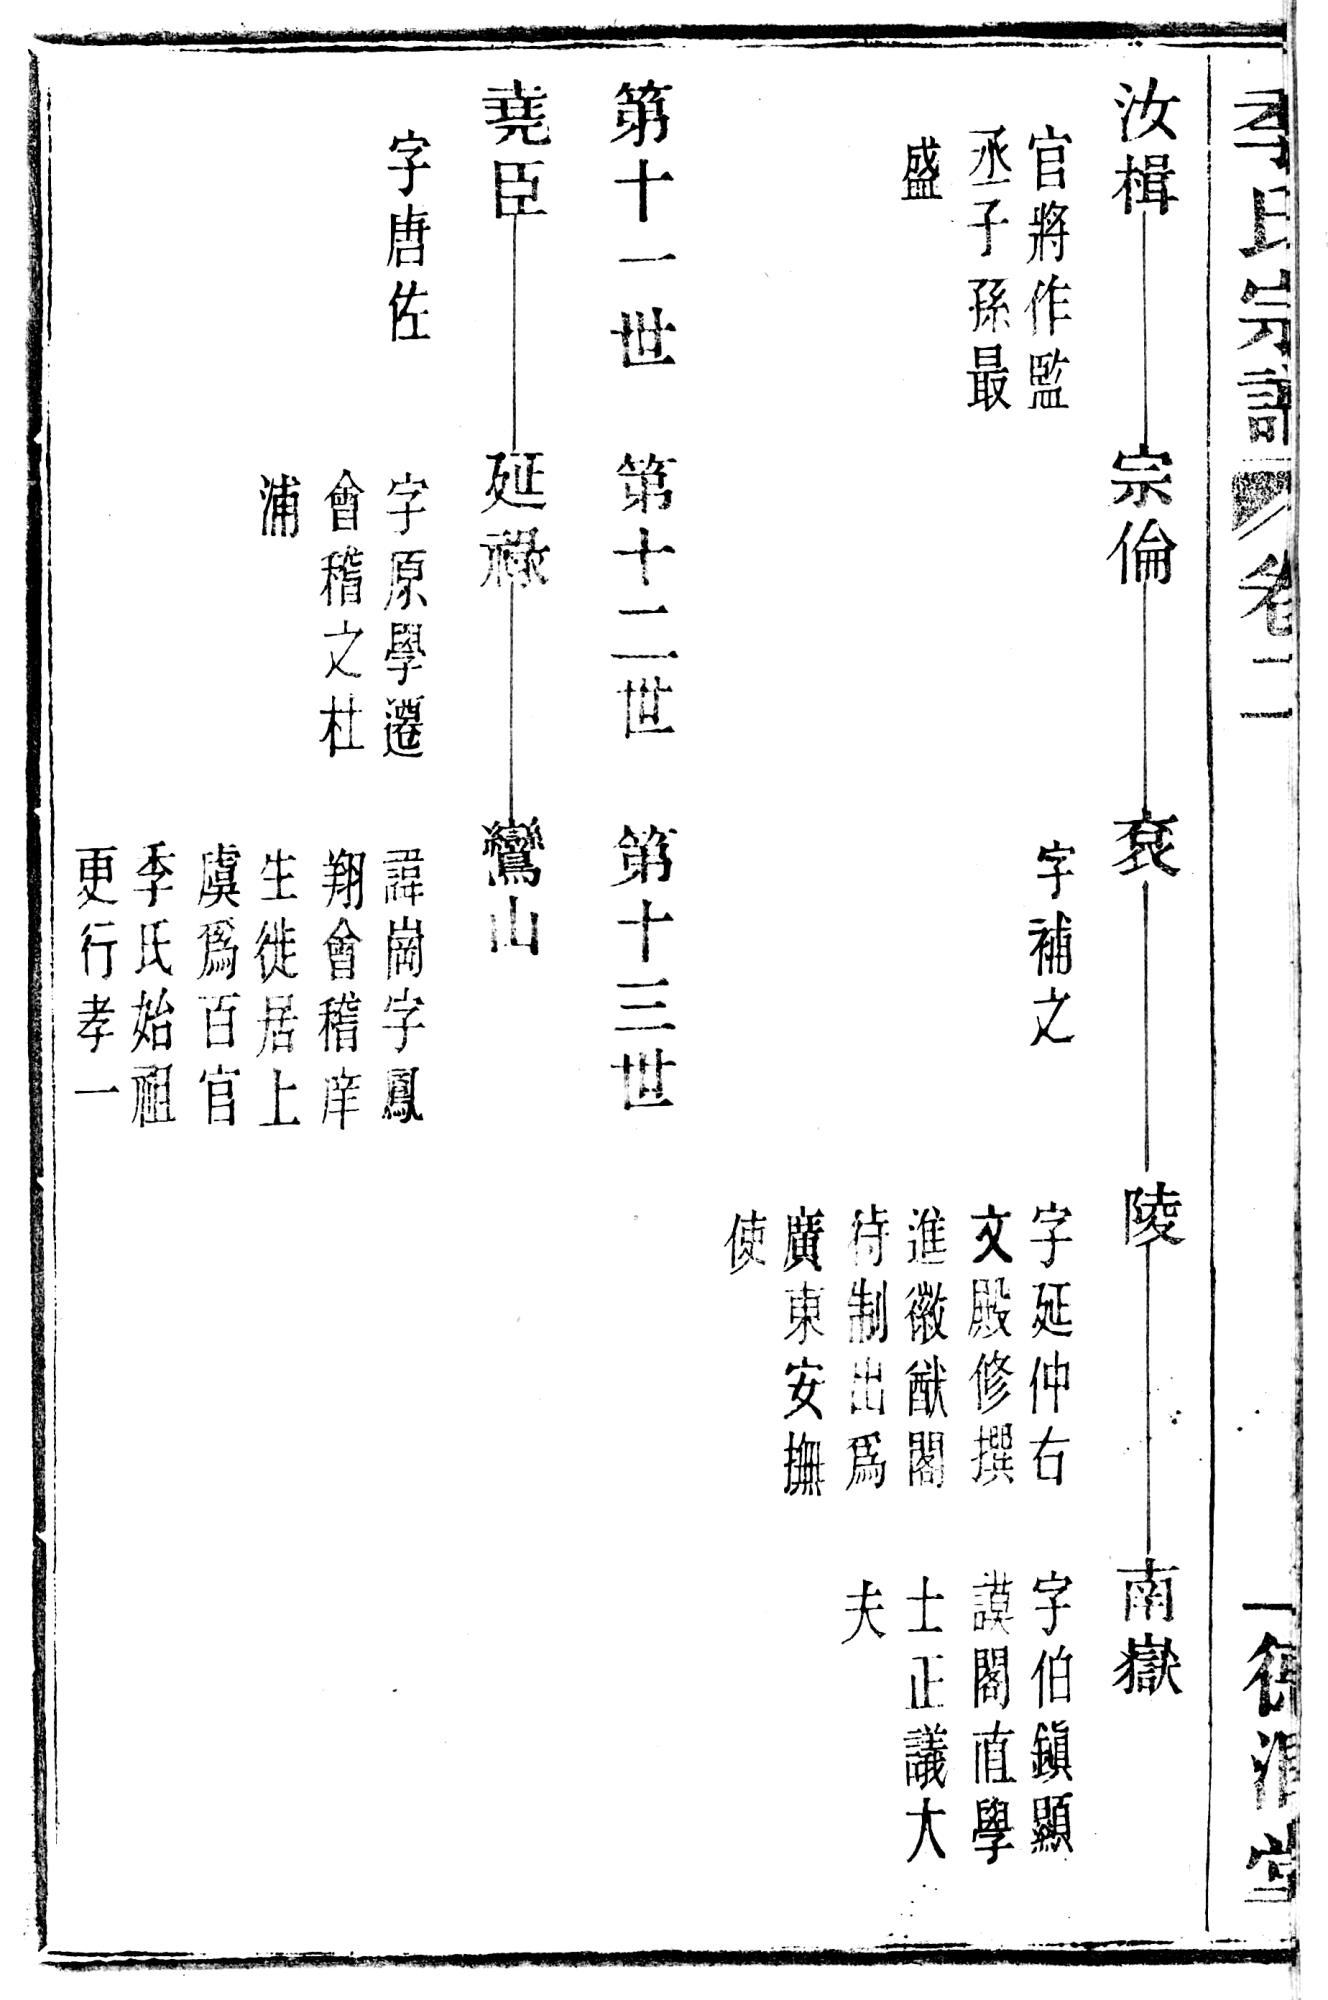 季氏宗譜
卷二
一
德潤堂
汝楫
官將作監
丞子孫最
盛
宗倫
袞
字補之
陵
字延仲右
文殿修撰
進徽猷閣
待制出爲
廣東安撫
使
南嶽
字伯鎮顯
謨閣直學
士正議大
夫
第十一世
第十二世
第十三世
堯臣
字唐佐
延祿
字原學遷
會稽之杜
浦
鸞山
諱崗字鳳
翔會稽庠
生徙居上
虞爲百官
季氏始祖
更行孝一